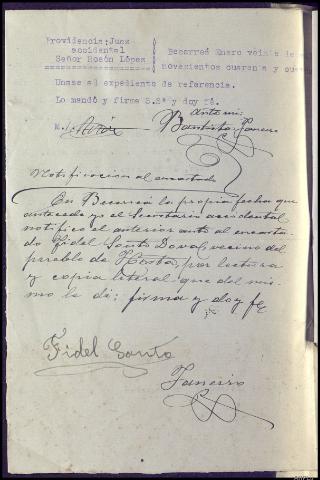 Providencia:Juez
accidental
Señor Rosón López
Becerreá Enero veinte de
novecientos cuarenta y
Unase al expediente de referencia.
Lo mandó y firma S.Sª y doy fé.
Ante mi:
M.
Bautista
Notificación al encartado
En Becerreá la propia fecha que
antecede yo el Secretario accidental
notifico el anterior auto al encarta-
do Fidel Santo Doval vecino del
pueblo de por lectura
y copia literal que del mis-
mo le di; firma y doy fe
Fidel Santo
Janeiro